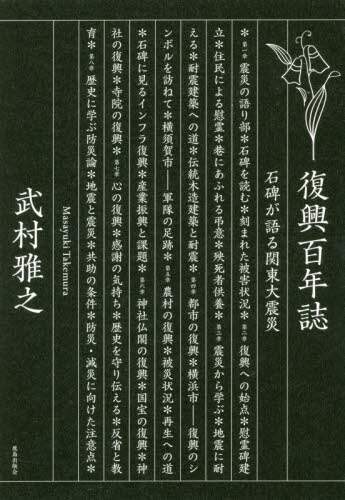 復興百年誌
石碑が語る関東大震災
＊第一章 震災の語り部＊石碑を読む＊刻まれた被害状況＊第二章 復興への始点＊慰霊碑建
立＊住民による慰霊＊巷にあふれる弔意＊殃死者供養＊第三章 震災から学ぶ＊地震に耐
える＊耐震建築への道＊伝統木造建築と耐震＊第四章 都市の復興＊横浜市――復興のシ
ンボルを訪ねて＊横須賀市――軍隊の足跡＊第五章 農村の復興＊被災状況＊再生への道
＊石碑に見るインフラ復興＊産業振興と課題＊第六章 神社仏閣の復興＊国宝の復興＊神
社の復興＊寺院の復興＊第七章 心の復興＊感謝の気持ち＊歴史を守り伝える＊反省と教
育＊第八章 歴史に学ぶ防災論＊地震と震災＊共助の条件＊防災・減災に向けた注意点＊
Masayuki Takemura
武村雅之
鹿島出版会